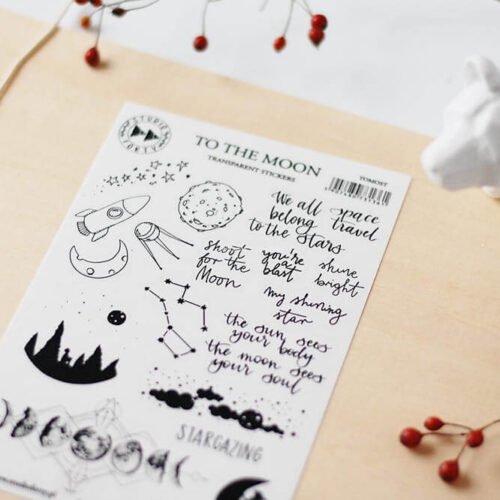 STUDIO
FORTY
TO THE MOON
TRANSPARENT STICKERS
TOMOST
We all
belong
to the stars
space
travel
shoot
for the
Moon
you're
a
blast
shine
bright
my shining
star
the sun sees
your body
the moon sees
your soul
STARGAZING